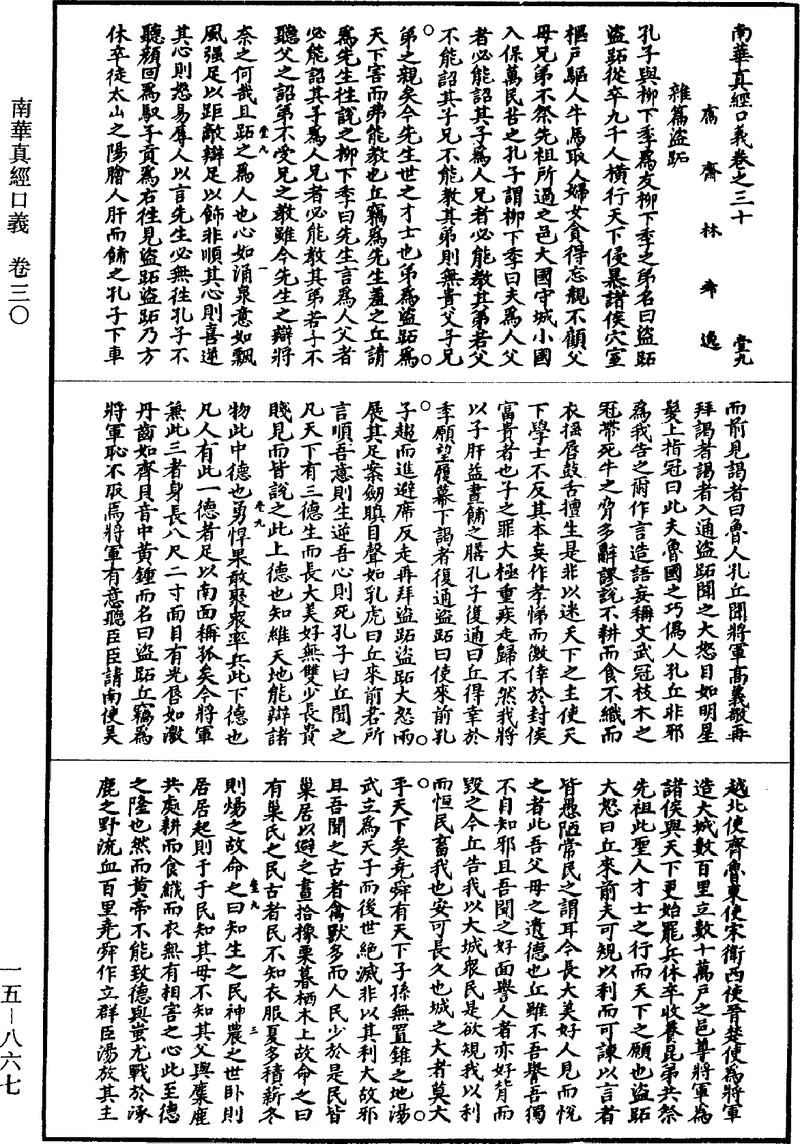 南華真經口義卷之三十 堂九
鬳齋林希逸
雜篇盜跖
孔子與柳下季為友柳下季之弟名曰盜跖
盜跖從卒九千人橫行天下侵暴諸侯穴室
樞戶驅人牛馬取人婦女貪得忘親不顧父
母兄弟不祭先祖所過之邑大國守城小國
入保萬民苦之孔子謂柳下季曰夫為人父
者必能詔其子為人兄者必能教其弟若父
不能詔其子兄不能教其弟則無貴父子兄
弟之親矣今先生世之才士也弟為盜跖為
天下害而弗能教也丘竊為先生羞之丘請
為先生往說之柳下季曰先生言為人父者
必能詔其子為人兄者必能教其弟若子不
聽父之詔弟不受兄之教雖今先生之辯將
奈之何哉且跖之為人也心如涌泉意如飄
堂九 一
風强足以距敵辯足以飾非順其心則喜逆
其心則怒易辱人以言先生必無往孔子不
聽顏回為馭子貢為右往見盜跖盜跖乃方
休卒徒太山之陽膾人肝而餔之孔子下車
而前見謁者曰魯人孔丘聞將軍高義敬再
拜謁者謁者入通盜跖聞之大怒目如明星
髮上指冠曰此夫魯國之巧僞人孔丘非邪
為我告之爾作言造語妄稱文武冠枝木之
冠帶死牛之脅多辭謬說不耕而食不織而
衣搖脣鼓舌擅生是非以迷天下之主使天
下學士不反其本妄作孝悌而儌倖於封侯
富貴者也子之罪大極重疾走歸不然我將
以子肝益晝餔之膳孔子復通曰丘得幸於
季願望履幕下謁者復通盜跖曰使來前孔
子趨而進避席反走再拜盜跖盜跖大怒兩
展其足案劒瞋目聲如乳虎曰丘來前若所
言順吾意則生逆吾心則死孔子曰丘聞之
凡天下有三德生而長大美好無雙少長貴
賤見而皆說之此上德也知維天地能辯諸
堂九
物此中德也勇悍果敢聚眾率兵此下德也
凡人有此一德者足以南面稱孤矣今將軍
兼此三者身長八尺二寸面目有光脣如激
丹齒如齊貝音中黃鍾而名曰盜跖丘竊為
將軍恥不取焉將軍有意聽臣臣請南使吳
越北使齊魯東使宋衛西使晉楚使為將軍
造大城數百里立數十萬戶之邑尊將軍為
諸侯與天下更始罷兵休卒收養昆弟共祭
先祖此聖人才士之行而天下之願也盜跖
大怒曰丘來前夫可規以利而可諫以言者
皆愚陋常民之謂耳今長大美好人見而悅
之者此吾父母之遺德也丘雖不吾譽吾獨
不自知邪且吾聞之好面譽人者亦好背而
毀之今丘告我以大城衆民是欲規我以利
而恒民畜我也安可長久也城之大者莫大
乎天下矣堯舜有天下子孫無置錐之地湯
武立為天子而後世絶滅非以其利大故邪
且吾聞之古者禽獸多而人民少於是民皆
巢居以避之晝拾橡栗暮栖木上故命之曰
有巢氏之民古者民不知衣服夏多積薪冬
堂九 三
則煬之故命之曰知生之民神農之世卧則
居居起則于于民知其母不知其父與麋鹿
共處耕而食織而衣無有相害之心此至德
之隆也然而黃帝不能致德與蚩尤戰於涿
鹿之野流血百里堯舜作立群臣湯放其主
南華真經口義 卷三〇
一五—八六七